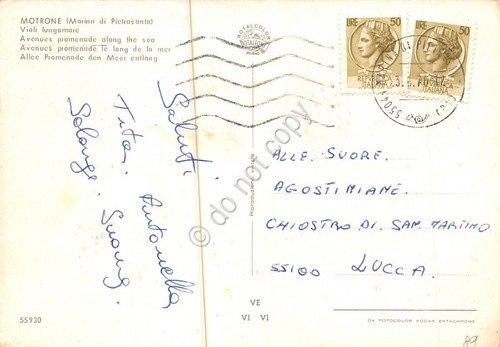 MOTRONE (Marina di Pietrasanta)
Viali lungomare
Avenues promenade along the sea
Avenues promenade le long de la mer
Allee Promenade den Meer entlang
LIRE 50
LIRE 50
ITALIANA
ITALIANA
Saluti
Antonella
Titos.
Solange. Suong.
ALLE SUORE.
AGOSTINIANE.
CHIOSTRO DI SAN MARTINO
55100 LUCCA.
do not copy
VE
VI VI
55930
DA FOTOCOLOR KODAK EKTACHROME
89